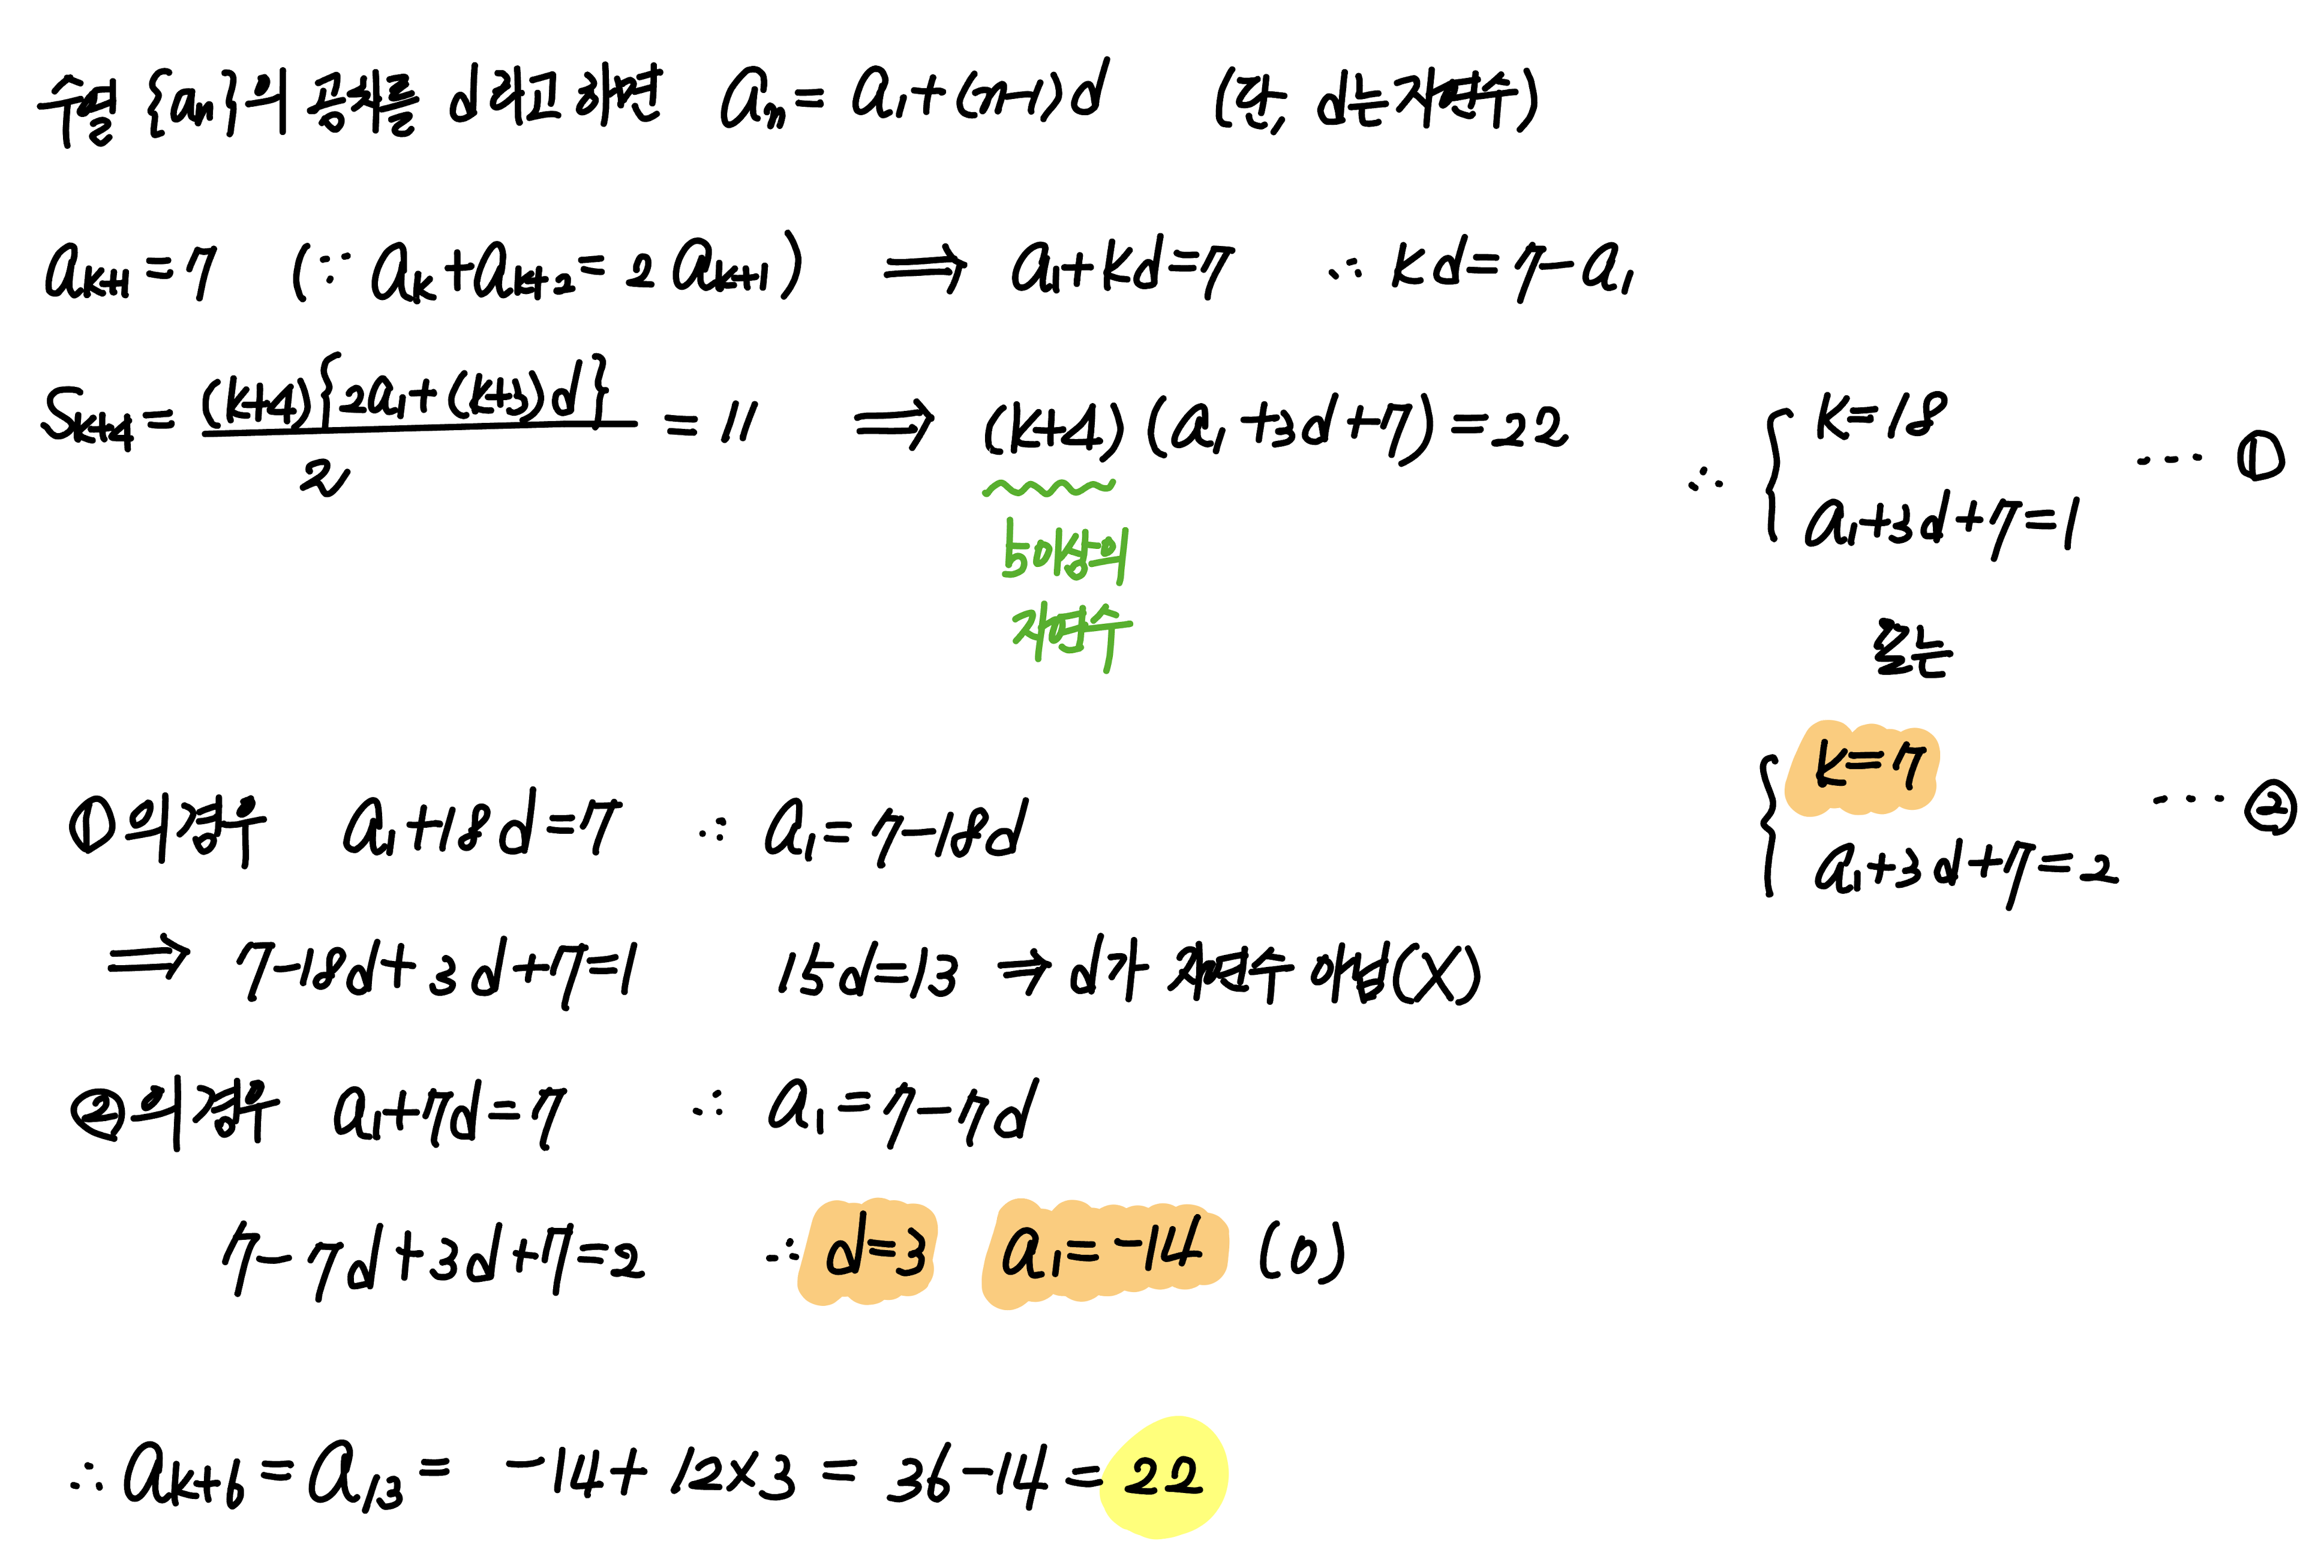 수열 {an}의 공차를 d라고 하면 an = a1+(n-1)d (단, d는 자연수)
ak+1 = 7 (∵ ak+ak+2 = 2ak+1) ⇒ a1+kd=7 ∴ kd=7-a1
Sk+4 = (k+4){2a1+(k+3)d}/2 = 11 ⇒ (k+4)(a1+3d+7) = 22
5이상의
자연수
∴ { k=18
a1+3d+7=1 ··· ①
또는
{ k=7
a1+3d+7=2 ··· ②
①의 경우 a1+18d=7 ∴ a1=7-18d
⇒ 7-18d+3d+7=1 15d=13 ⇒ d가 자연수 아님(X)
②의 경우 a1+7d=7 ∴ a1=7-7d
7-7d+3d+7=2 ∴ d=3 a1=-14 (O)
∴ ak+6 = a13 = -14+12×3 = 36-14 = 22